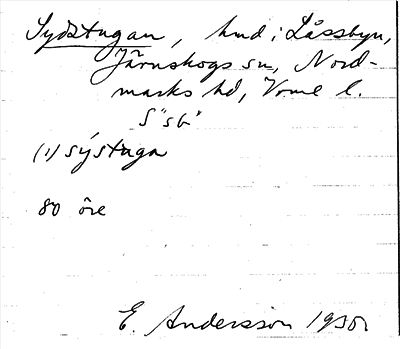 Sydstugan, hmd i Låssbyn,
Järnskogs sn, Nord-
marks hd, Vrml l.
(1) sýstuga
80 öre
E. Andersson